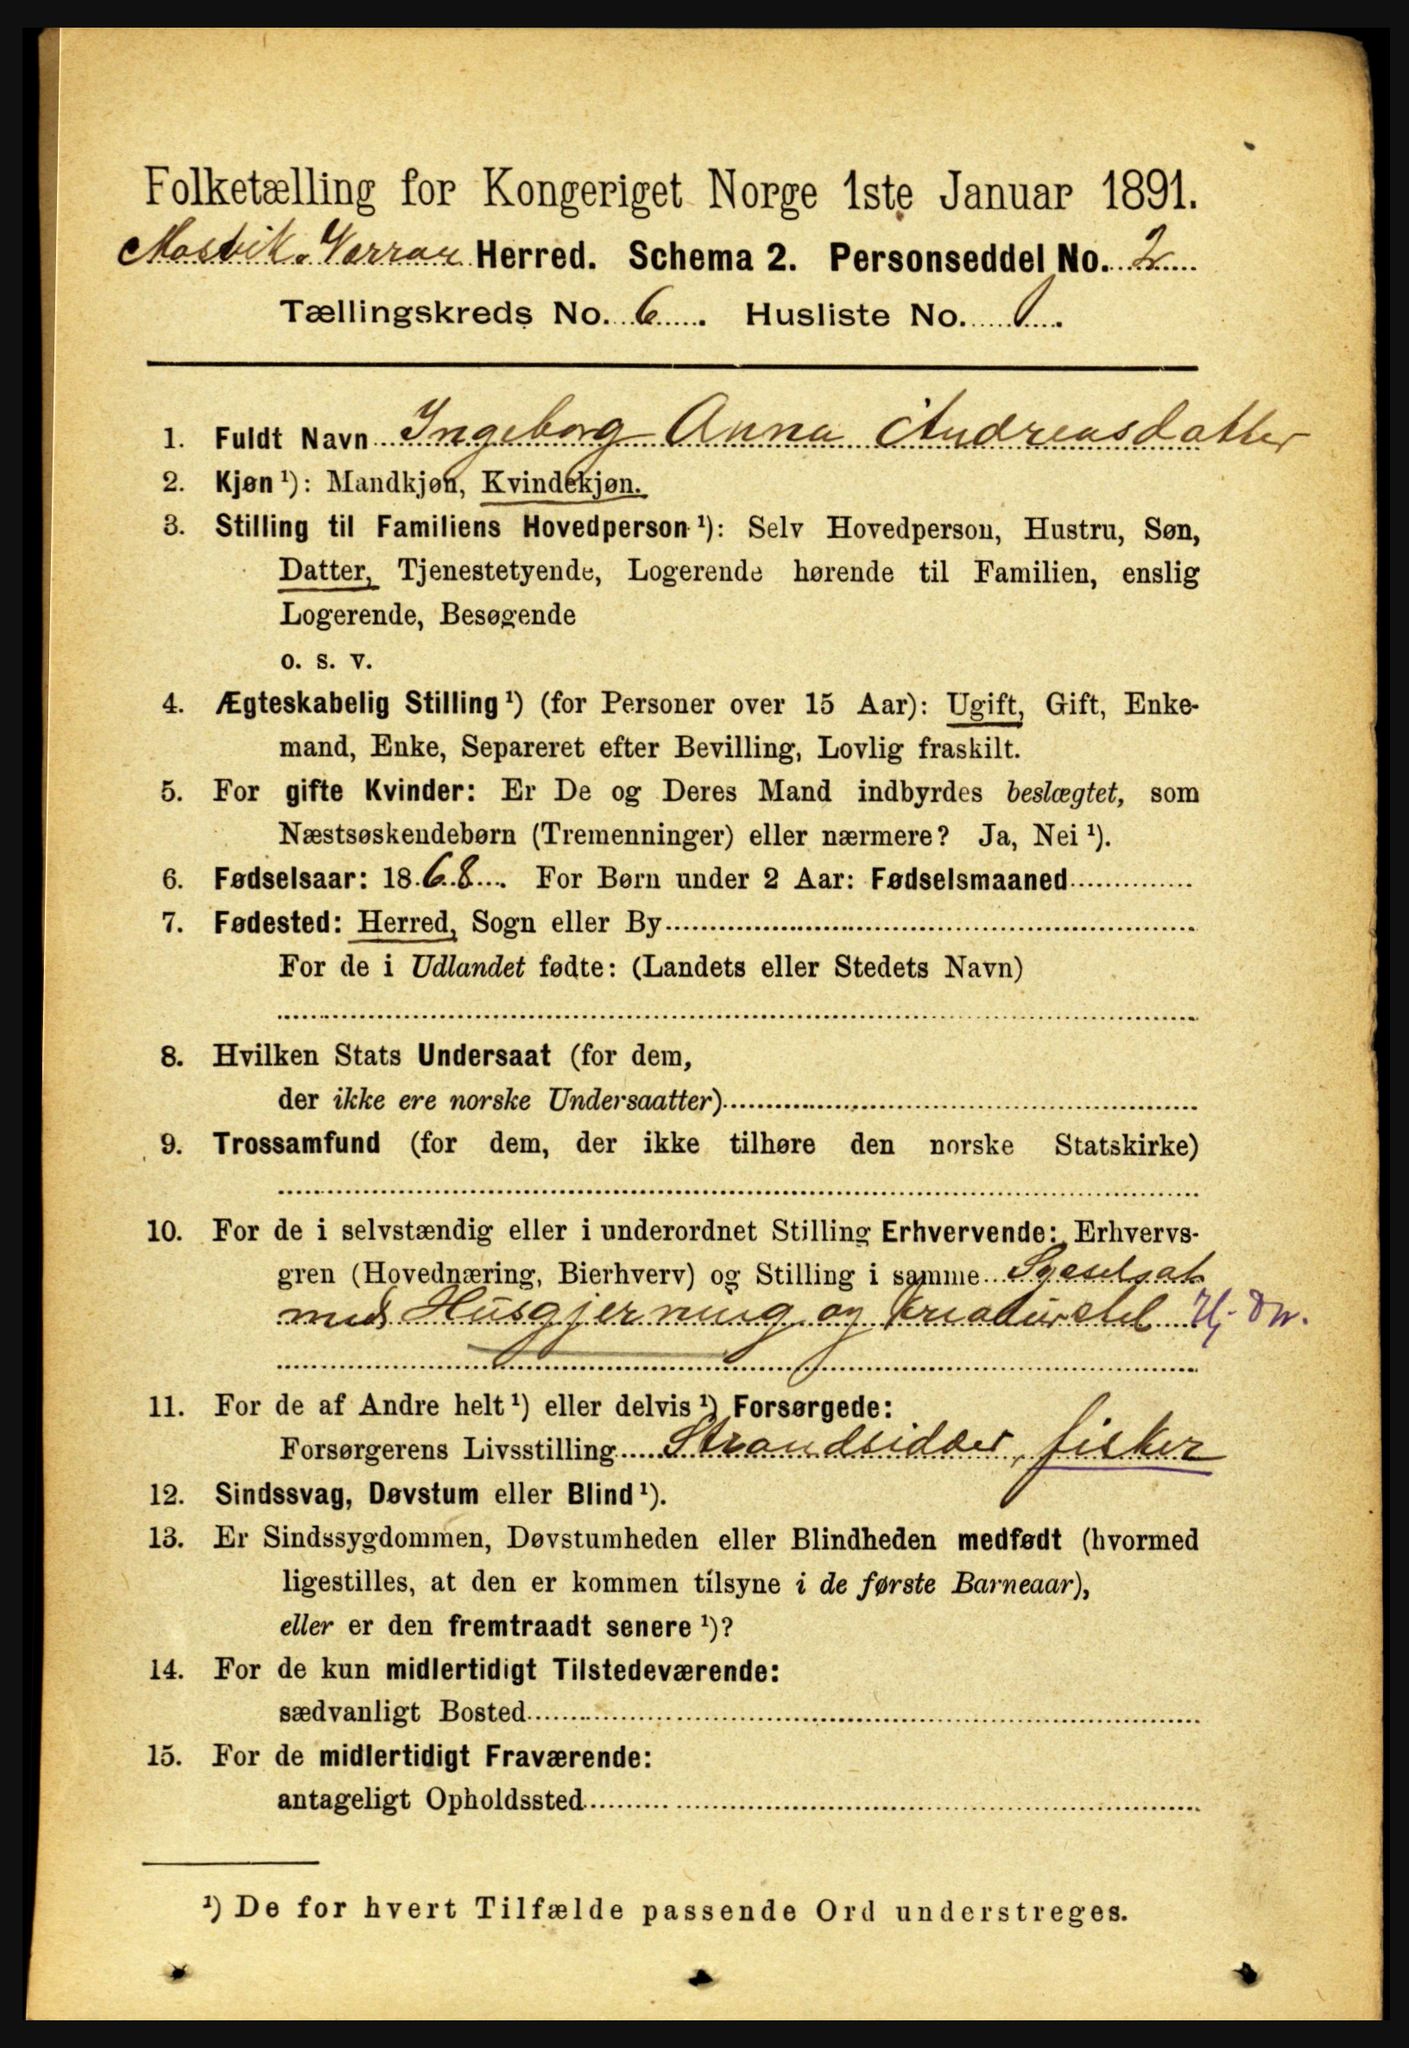 Folketælling for Kongeriget Norge 1ste Januar 1891.
Mosvik & Verran Herred. Schema 2. Personseddel No. 2
Tællingskreds No. 6. Husliste No. 1.
1. Fuldt Navn Ingeborg Anna Andreasdatter
2. Kjøn ¹): Mandkjøn, Kvindekjøn.
3. Stilling til Familiens Hovedperson ¹): Selv Hovedperson, Hustru, Søn,
Datter, Tjenestetyende, Logerende hørende til Familien, enslig
Logerende, Besøgende
o. s. v.
4. Ægteskabelig Stilling ¹) (for Personer over 15 Aar): Ugift, Gift, Enke-
mand, Enke, Separeret efter Bevilling, Lovlig fraskilt.
5. For gifte Kvinder: Er De og Deres Mand indbyrdes beslægtet, som
Næstsøskendebørn (Tremenninger) eller nærmere? Ja, Nei ¹).
6. Fødselsaar: 1868. For Børn under 2 Aar: Fødselsmaaned
7. Fødested: Herred, Sogn eller By
For de i Udlandet fødte: (Landets eller Stedets Navn)
8. Hvilken Stats Undersaat (for dem,
der ikke ere norske Undersaatter)
9. Trossamfund (for dem, der ikke tilhøre den norske Statskirke)
10. For de i selvstændig eller i underordnet Stilling Erhvervende: Erhvervs-
gren (Hovednæring, Bierhverv) og Stilling i samme Syselsat
med Husgjerning og Kreaturstel
11. For de af Andre helt ¹) eller delvis ¹) Forsørgede:
Forsørgerens Livsstilling Strandsidder, fisker
12. Sindssvag, Døvstum eller Blind ¹).
13. Er Sindssygdommen, Døvstumheden eller Blindheden medfødt (hvormed
ligestilles, at den er kommen tilsyne i de første Barneaar),
eller er den fremtraadt senere ¹)?
14. For de kun midlertidigt Tilstedeværende:
sædvanligt Bosted
15. For de midlertidigt Fraværende:
antageligt Opholdssted
¹) De for hvert Tilfælde passende Ord understreges.